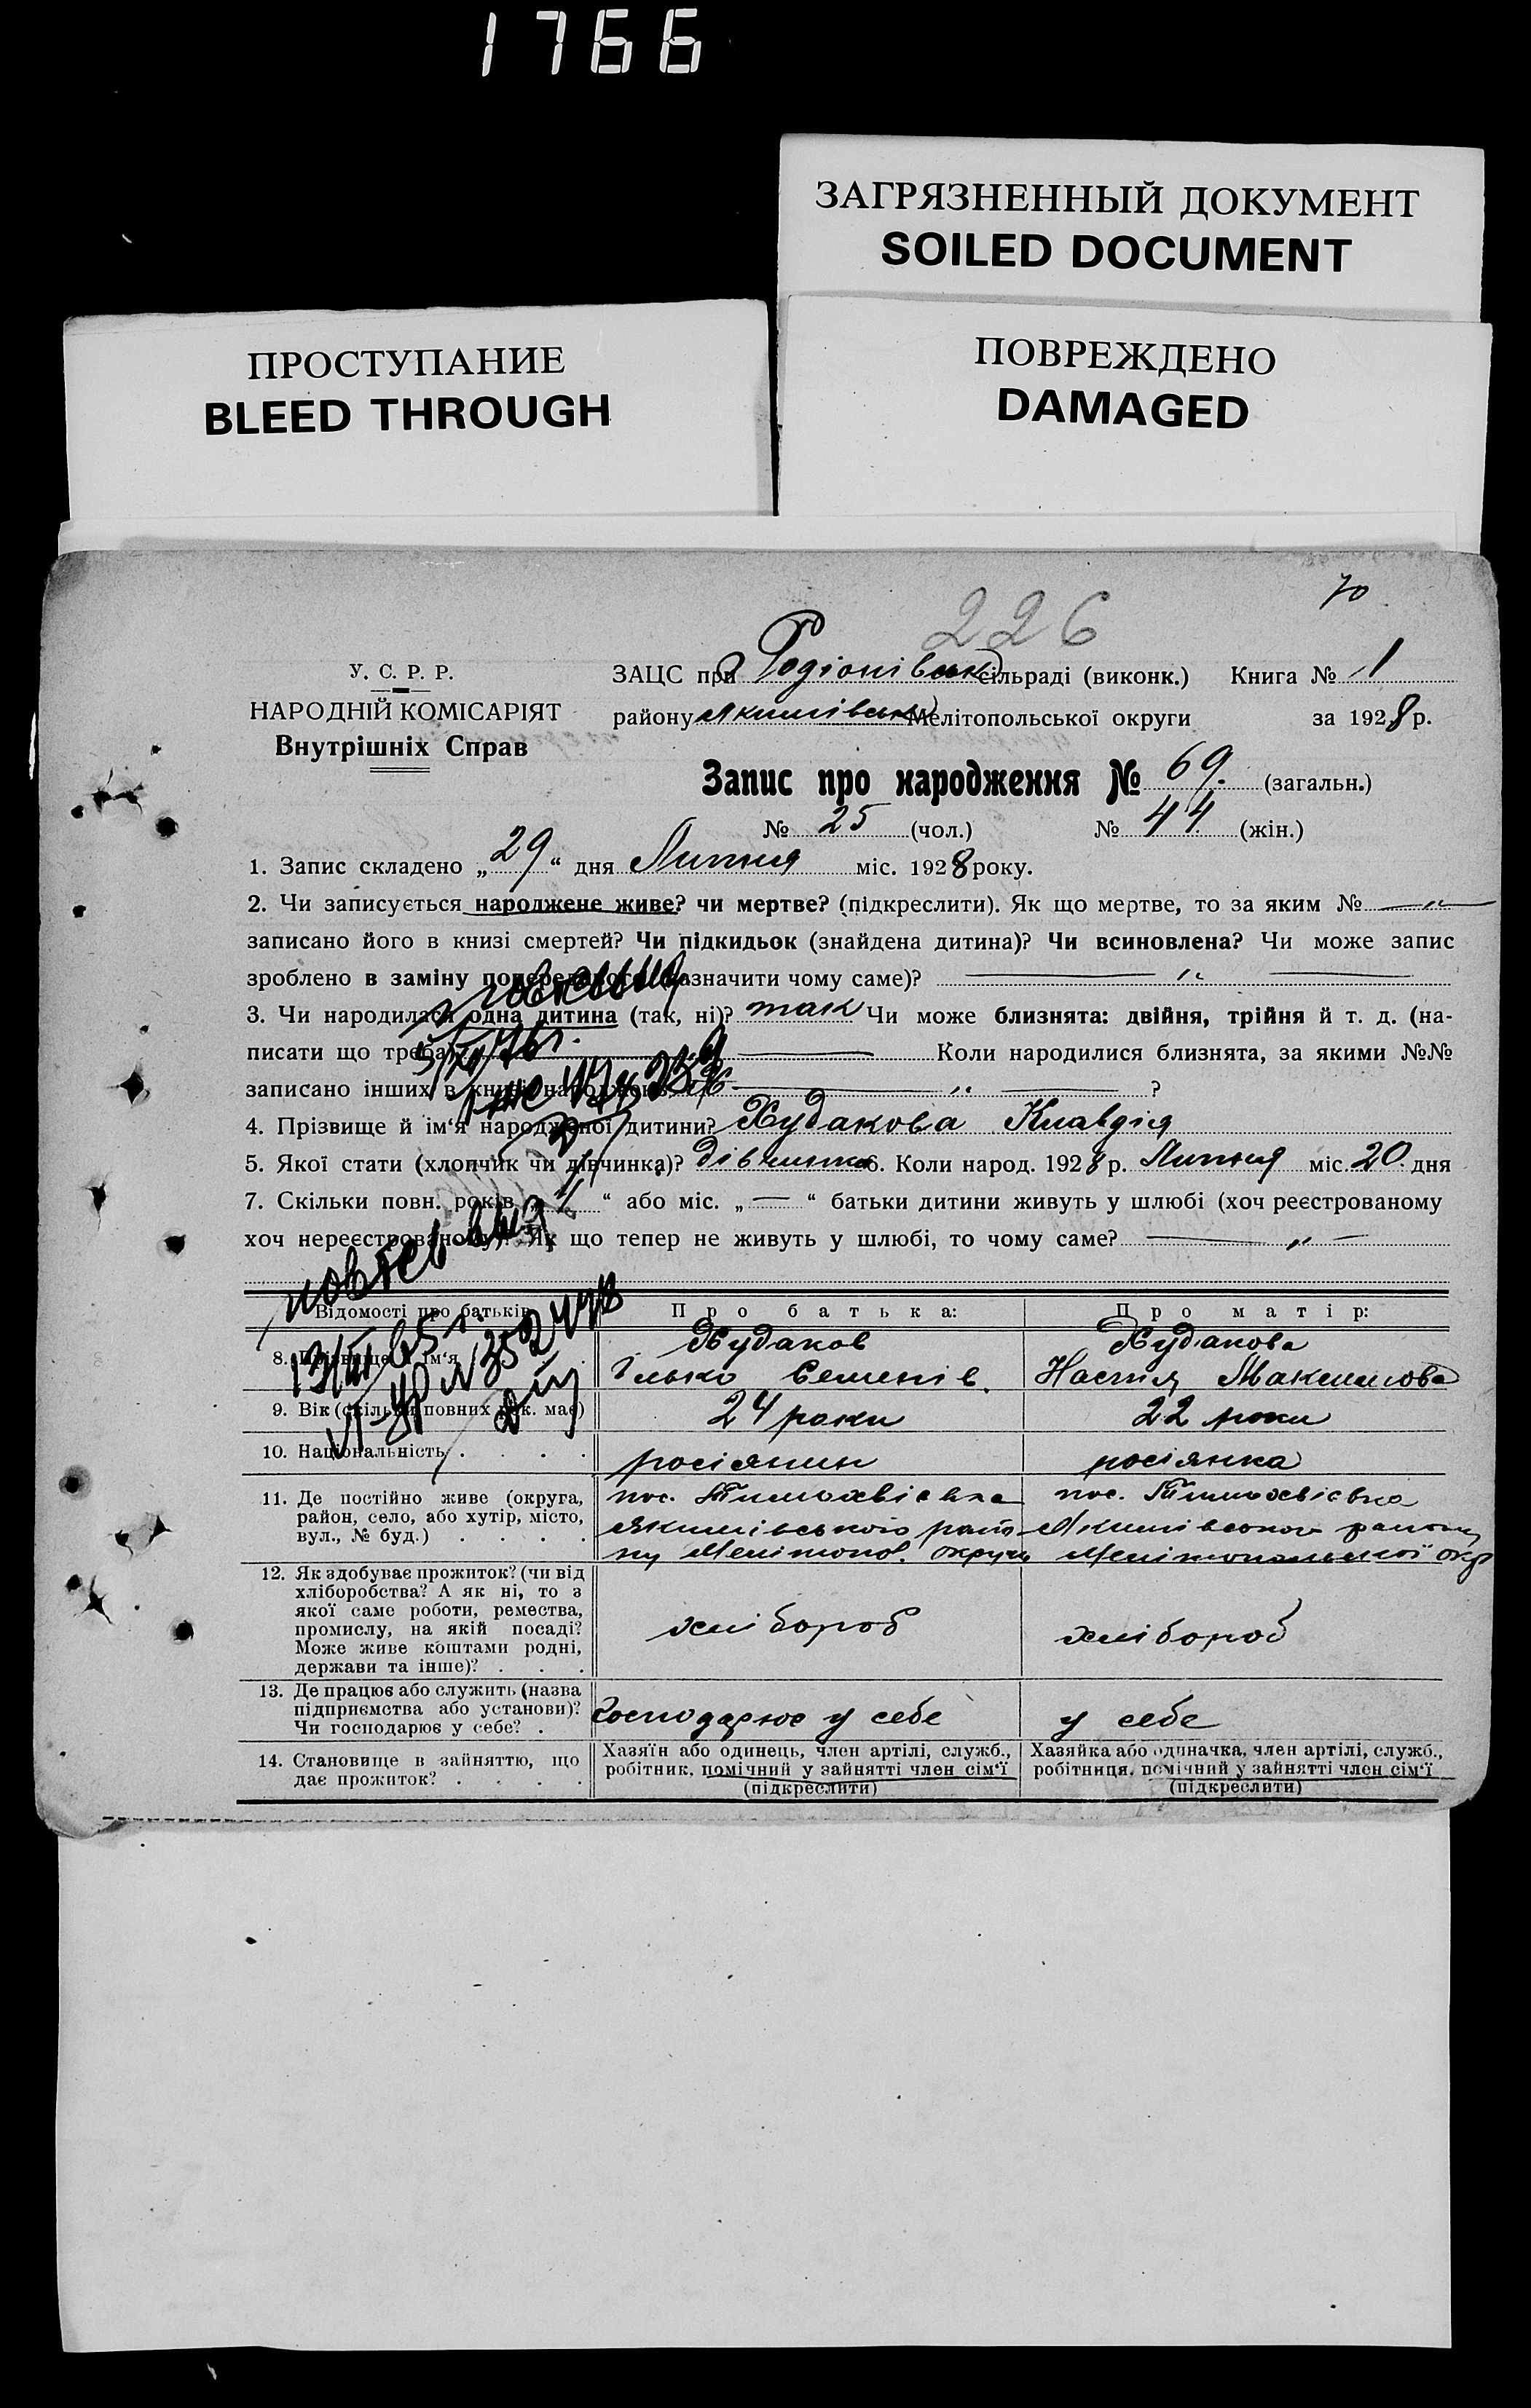 1766
ЗАГРЯЗНЕННЫЙ ДОКУМЕНТ
SOILED DOCUMENT
ПРОСТУПАНИЕ
BLEED THROUGH
ПОВРЕЖДЕНО
DAMAGED
70
226
У. С. Р. Р.
НАРОДНІЙ КОМІСАРІЯТ
Внутрішніх Справ
ЗАЦС при Родіонівськ сільраді (виконк.) Книга № 1
району Якимівськ Мелітопольської округи за 1928 р.
Запис про народження № 69. (загальн.)
№ 25 (чол.) № 44. (жін.)
1. Запис складено „29“ дня Липня міс. 1928 року.
2. Чи записується народжене живе? чи мертве? (підкреслити). Як що мертве, то за яким № — „ —
записано його в книзі смертей? Чи підкидьок (знайдена дитина)? Чи всиновлена? Чи може запис
зроблено в заміну попереднього (зазначити чому саме)? — „ —
3. Чи народилася одна дитина (так, ні)? так Чи може близнята: двійня, трійня й т. д. (на-
писати що треба) — Коли народилися близнята, за якими №№
записано інших в книзі народжень — „ — ?
4. Прізвище й ім‘я народженої дитини? Худакова Клавдія
5. Якої стати (хлопчик чи дівчинка)? дівчинка 6. Коли народ. 1928 р. Липня міс. 20. дня
7. Скільки повн. років „ “ або міс. „ — “ батьки дитини живуть у шлюбі (хоч реєстрованому
хоч нереєстрованому). Як що тепер не живуть у шлюбі, то чому саме? — „ —
Відомості про батьків Про батька: Про матір:
8. Прізвище й ім‘я Худаков Худакова
Ілько Семенів. Настія Максимова
9. Вік (скільки повних рок. має) 24 роки 22 роки
10. Національність . . . . росіянин росіянка
11. Де постійно живе (округа, район, село, або хутір, місто, вул., № буд.) . . . .
пос. Тимохвієвка
Якимівського райо-
ну Мелітопол. округи
пос. Тимохвієвка
Якимівського району
Мелітопольської окр
12. Як здобуває прожиток? (чи від
хліборобства? А як ні, то з
якої саме роботи, ремества,
промислу, на якій посаді?
Може живе коштами родні,
держави та інше)? . . .
хлібороб хлібороб
13. Де працює або служить (назва
підприємства або установи)?
Чи господарює у себе? .
Господарює у себе у себе
14. Становище в зайняттю, що
дає прожиток? . . . .
Хазяїн або одинець, член артілі, служб.,
робітник, помічний у зайнятті член сім‘ї
(підкреслити)
Хазяйка або одиначка, член артілі, служб.,
робітниця, помічний у зайнятті член сім‘ї
(підкреслити)